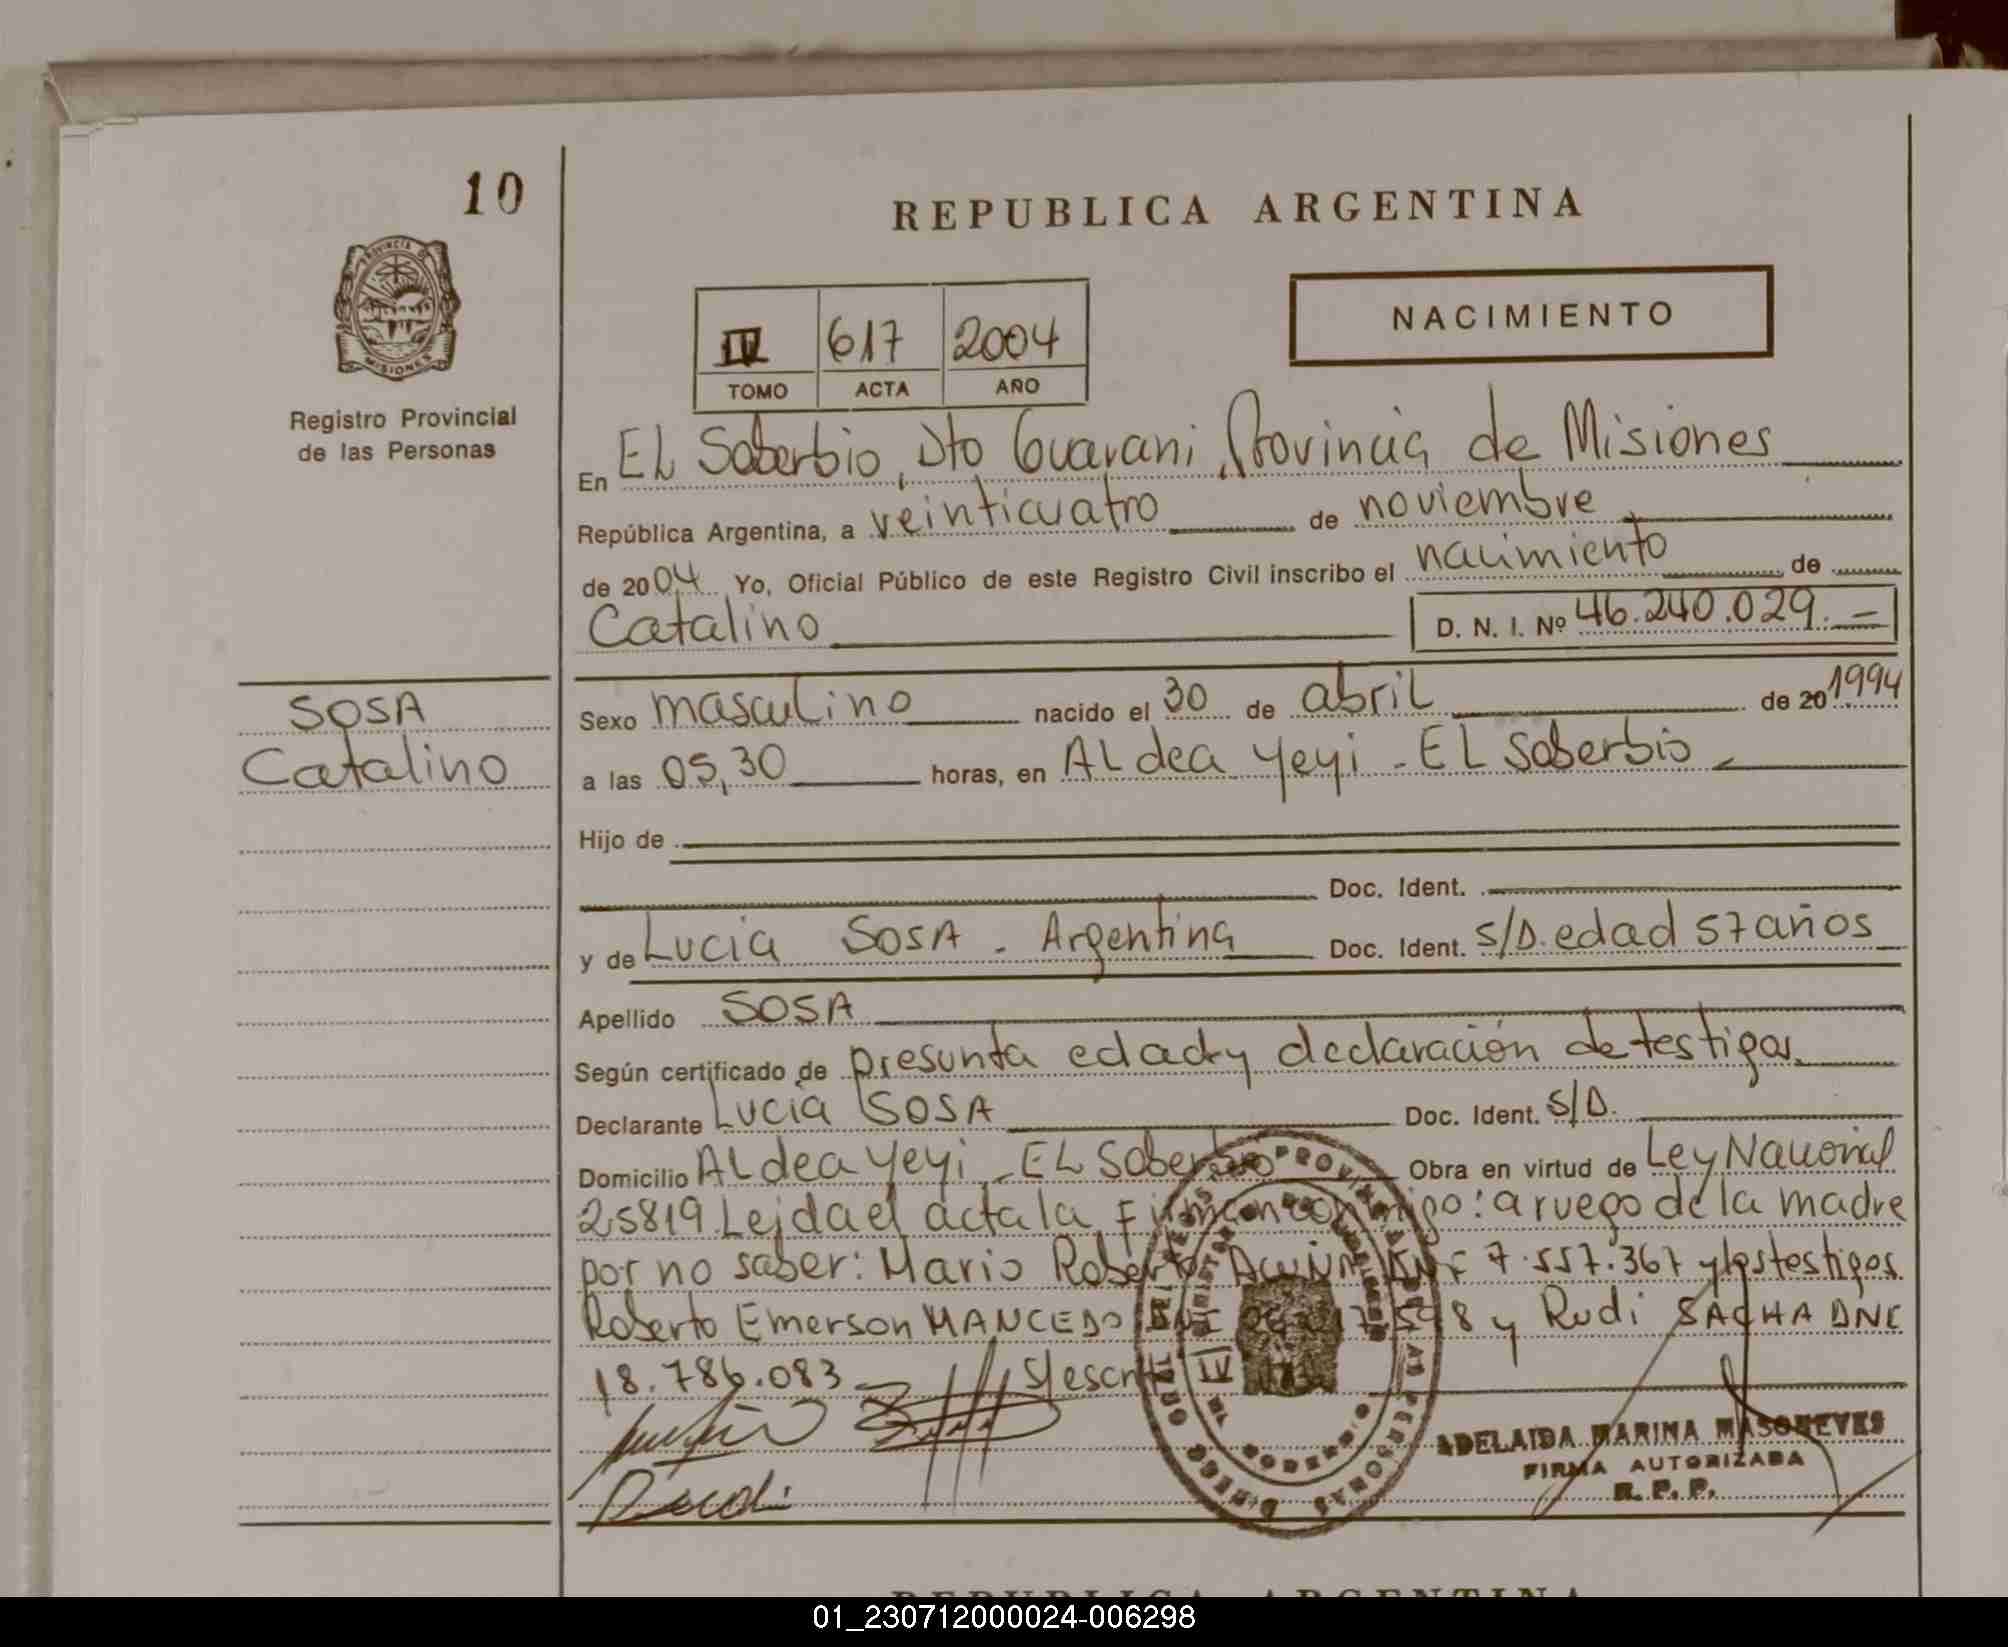 10
REPUBLICA ARGENTINA
PROVINCIA DE
MISIONES
Registro Provincial
de las Personas
NACIMIENTO
IV 617 2004
TOMO ACTA AÑO
En EL Soberbio, Dto Guarani, Provincia de Misiones
República Argentina, a veinticuatro de noviembre
de 2004 Yo, Oficial Público de este Registro Civil inscribo el nacimiento de
Catalino D. N. I. Nº 46.240.029.-
SOSA
Catalino
Sexo masculino nacido el 30 de abril de 20 1994
a las 05,30 horas, en ALdea Yeyi - EL Soberbio
Hijo de
Doc. Ident.
y de Lucia SOSA - Argentina Doc. Ident. S/D. edad 57 años
Apellido SOSA
Según certificado de presunta edad y declaración de testigos
Declarante Lucia SOSA Doc. Ident. S/D.
Domicilio ALdea Yeyi - EL Soberbio Obra en virtud de Ley Nacional
25819. Leida el acta la Firman conmigo: a ruego de la madre
por no saber: Mario Roberto ACUÑA DNI 7.557.367 y los testigos
Roberto Emerson MANCEDO DNI y Rudi SACHA DNI
18.786.083
ADELAIDA MARINA MASONEVES
FIRMA AUTORIZADA
R. P. P.
REPUBLICA ARGENTINA
01_230712000024-006298